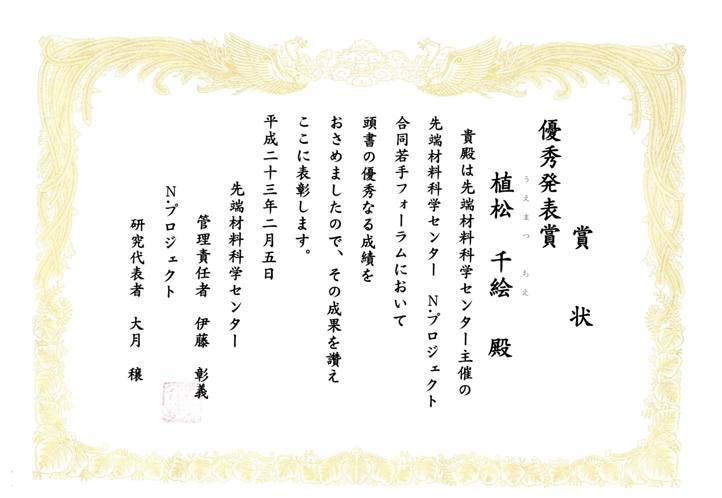 賞 状
優秀発表賞
うえまつ ちえ
植松 千絵 殿
貴殿は先端材料科学センター主催の
先端材料科学センター N.プロジェクト
合同若手フォーラムにおいて
頭書の優秀なる成績を
おさめましたので、その成果を讃え
ここに表彰します。
平成二十三年二月五日
先端材料科学センター
管理責任者 伊藤 彰義
N.プロジェクト
研究代表者 大月 穣